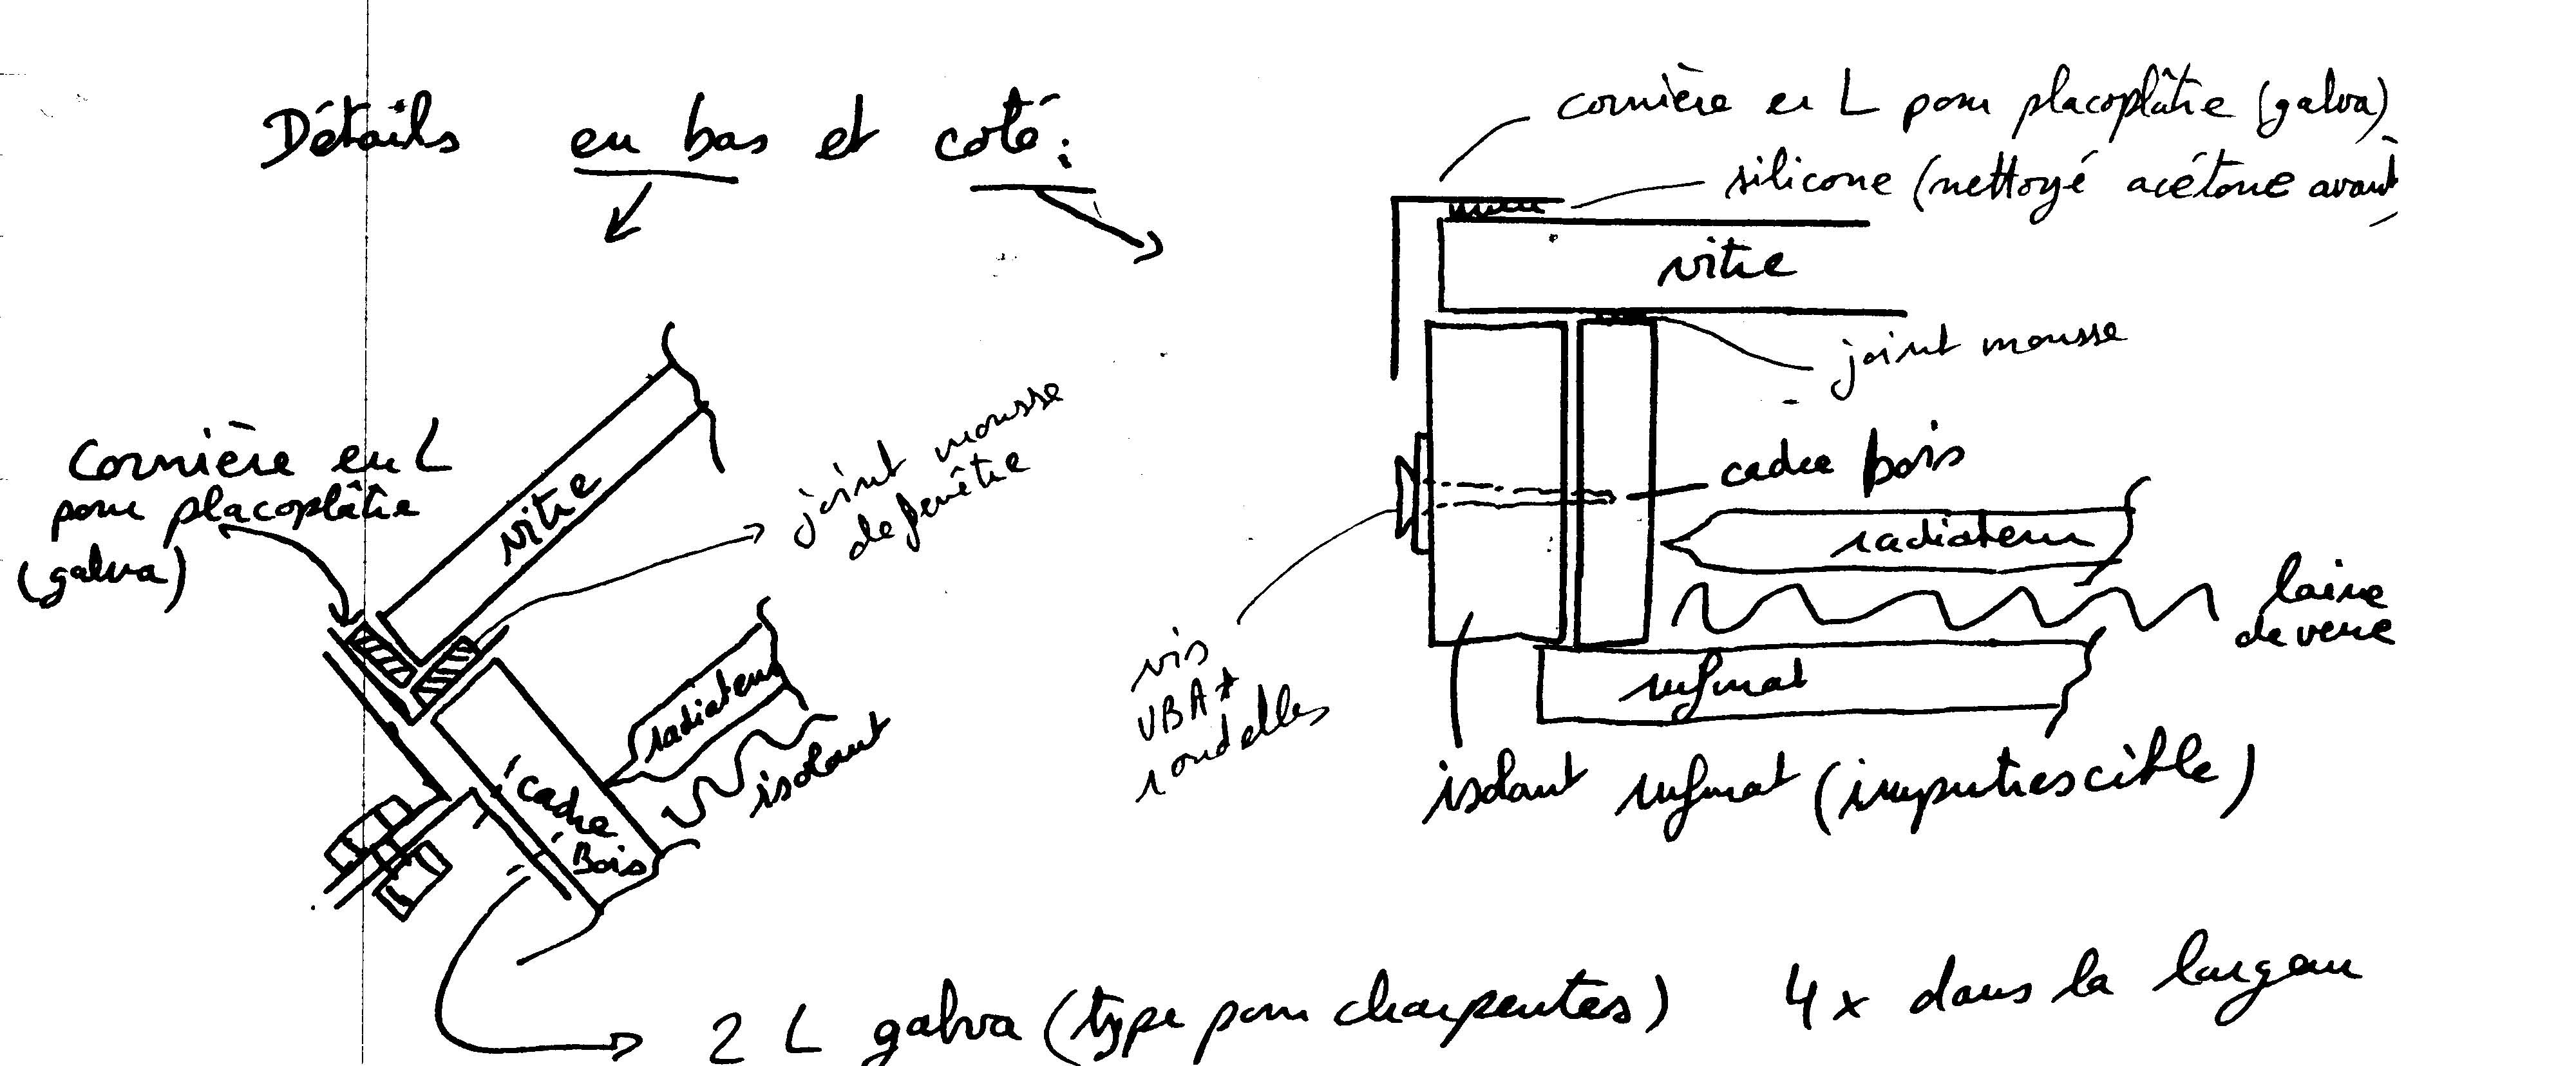 Détails en bas et coté:
cornière en L pour placoplâtre (galva)
silicone (nettoyé acétone avant)
vitre
joint mousse
cadre bois
radiateur
laine
de verre
vis
VBA +
rondelles
isolant (imputrescible)
Cornière en L
pour placoplâtre
(galva)
vitre
joint mousse
de fenêtre
radiateur
isolant
cadre
Bois
2 L galva (type pour charpentes) 4x dans la largeur